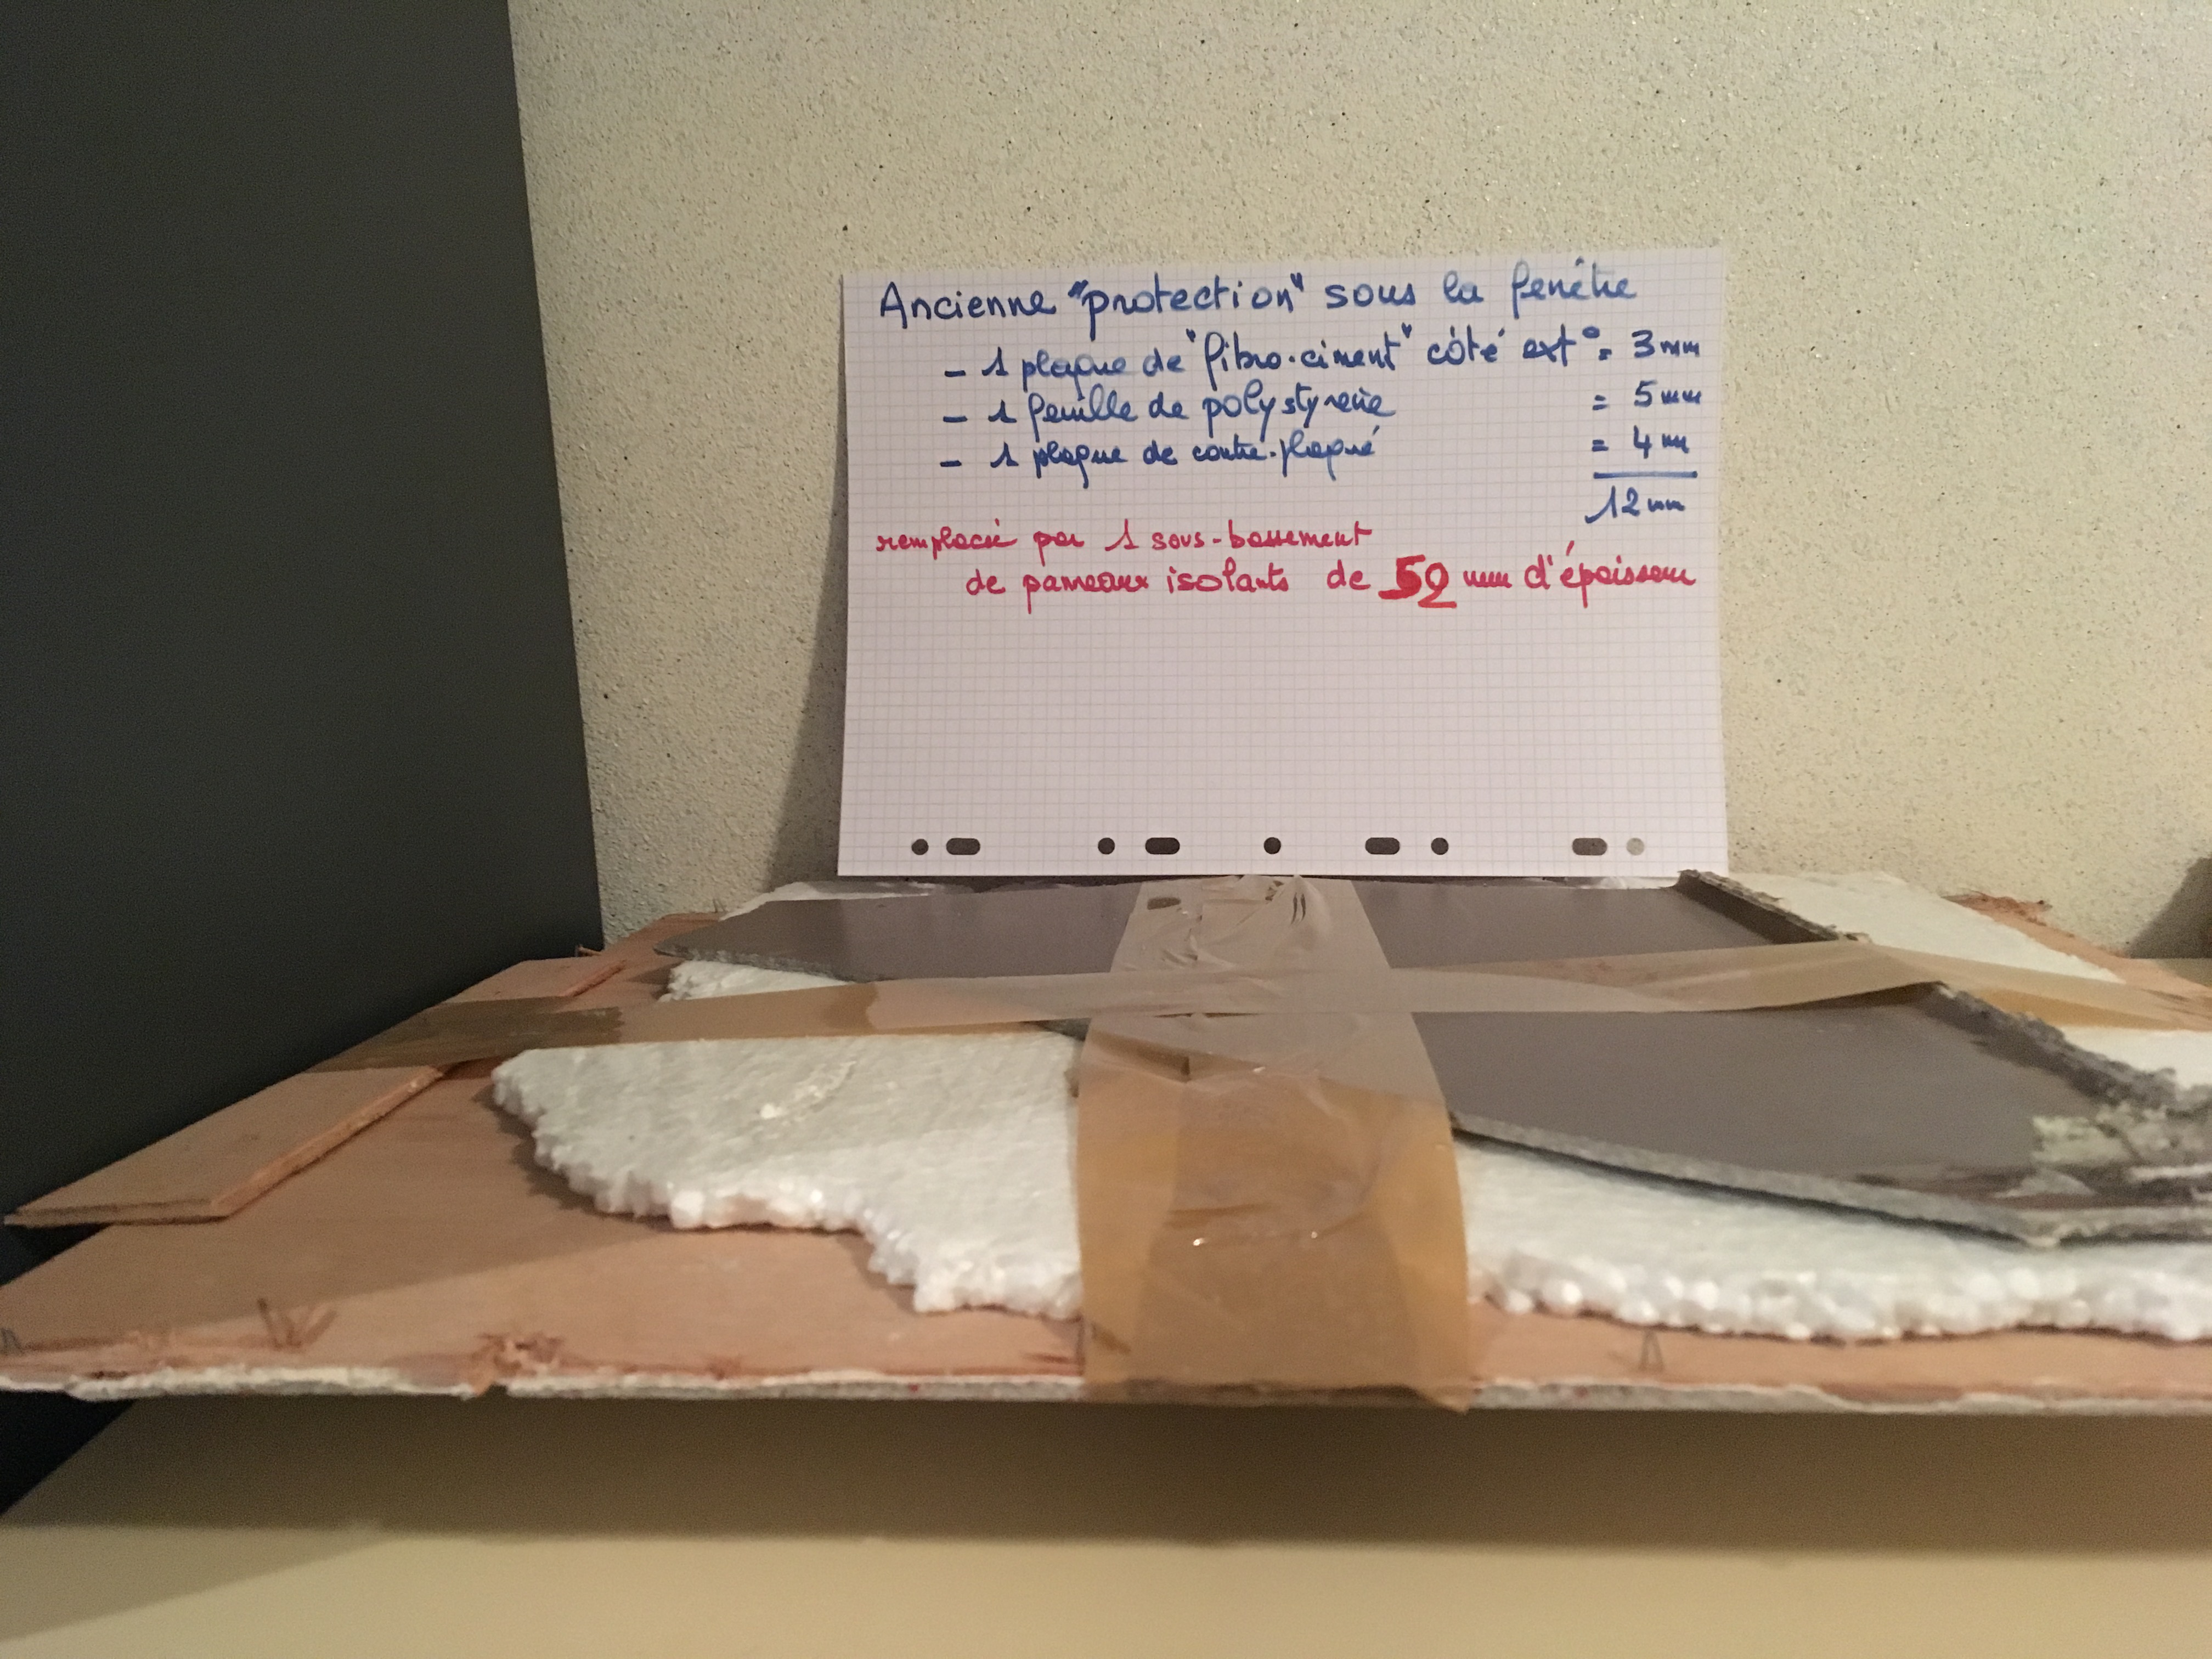 Ancienne "protection" sous la fenêtre
- 1 plaque de "fibro-ciment" côté ext° = 3 mm
- 1 feuille de polystyrène = 5 mm
- 1 plaque de contre-plaqué = 4 m
12 mm
remplacée par 1 sous-bassement
de panneaux isolants de 52 mm d'épaisseur